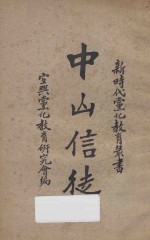 新時代黨化教育叢書
中山信徒
宜興黨化教育研究會編